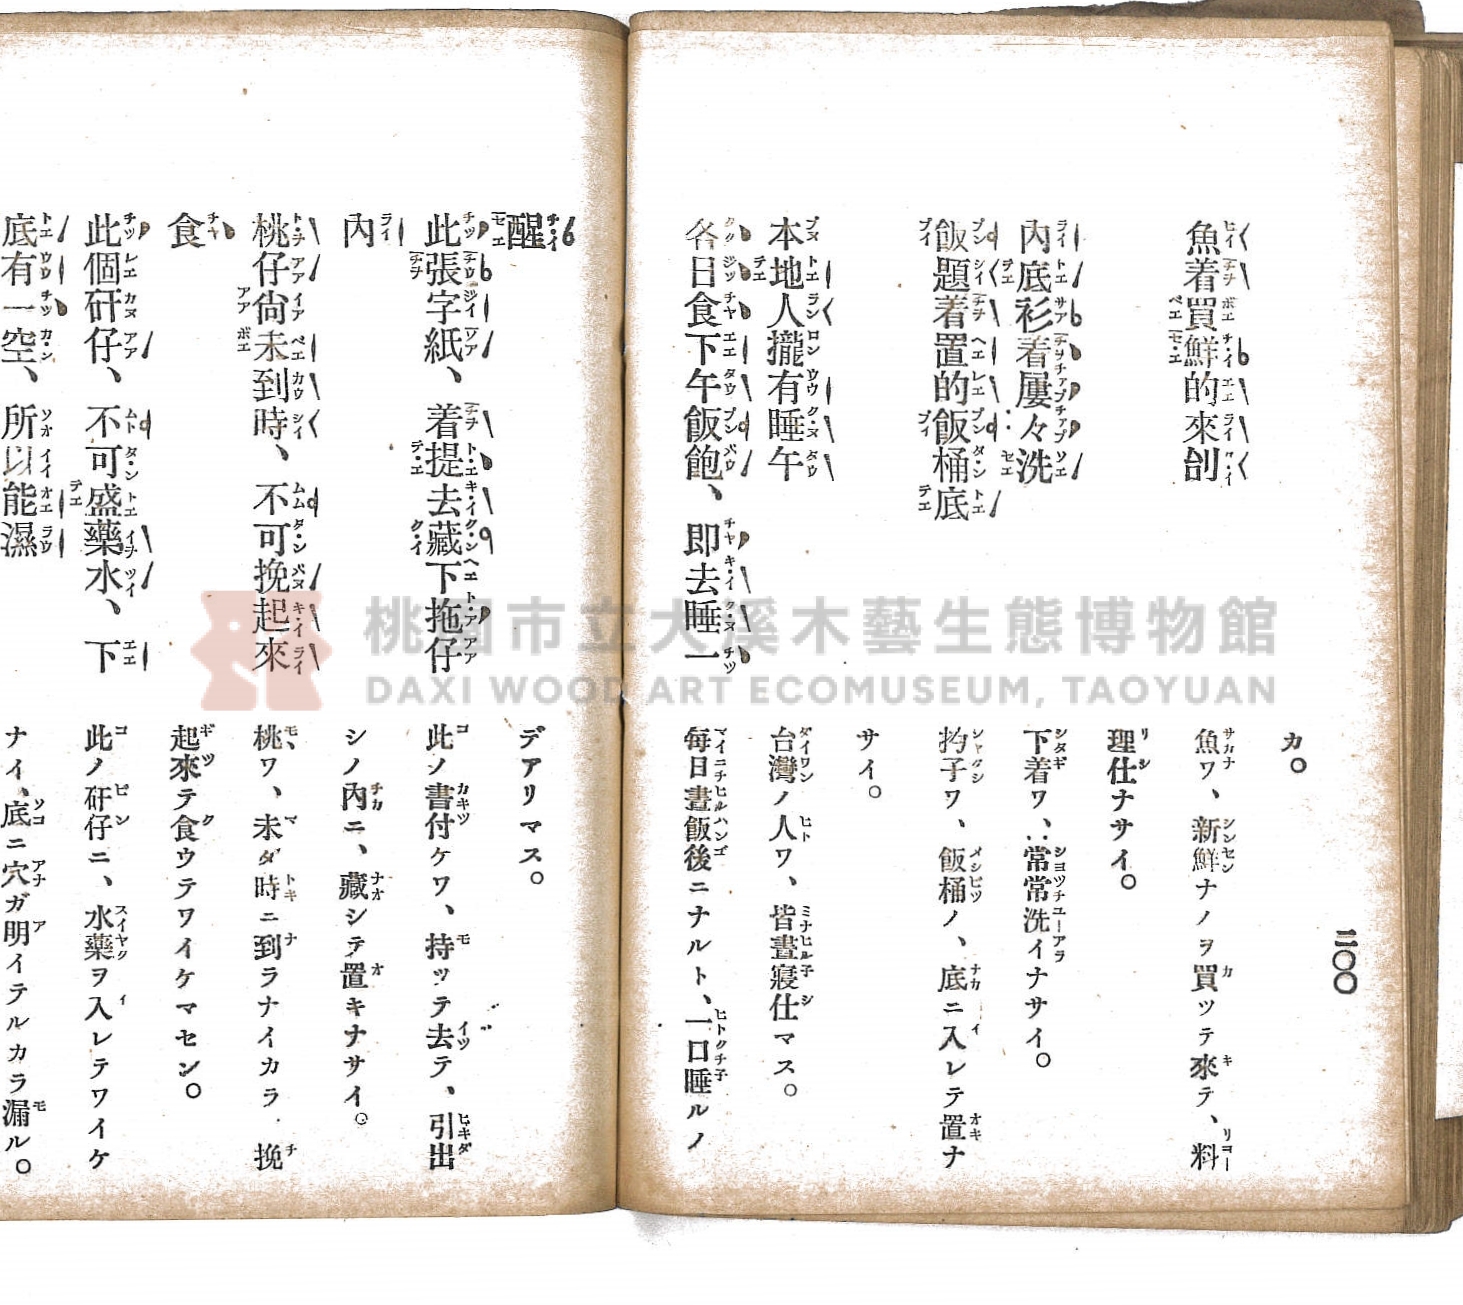 二〇〇
カ。
魚着買鮮的來刣
魚ワ、新鮮ナノヲ買ツテ來テ、料
理仕ナサイ。
內底衫着屢々洗
下着ワ、常常洗イナサイ。
飯題着置的飯桶底
杓子ワ、飯桶ノ、底ニ入レテ置ナ
サイ。
本地人攏有睡午
台灣ノ人ワ、皆晝寢仕マス。
各日食下午飯飽、即去睡一
每日晝飯後ニナルト、一口睡ルノ
醒
デアリマス。
此張字紙、着提去藏下拖仔
此ノ書付ケワ、持ッテ去テ、引出
內
シノ內ニ、藏シテ置キナサイ。
桃仔尙未到時、不可挽起來
桃ワ、未ダ時ニ到ラナイカラ、挽
食
起來テ食ウテワイケマセン。
此個矸仔、不可盛藥水、下
此ノ矸仔ニ、水藥ヲ入レテワイケ
底有一空、所以能濕
ナイ、底ニ穴ガ明イテルカラ漏ル。
桃園市立大溪木藝生態博物館
DAXI WOOD ART ECOMUSEUM, TAOYUAN